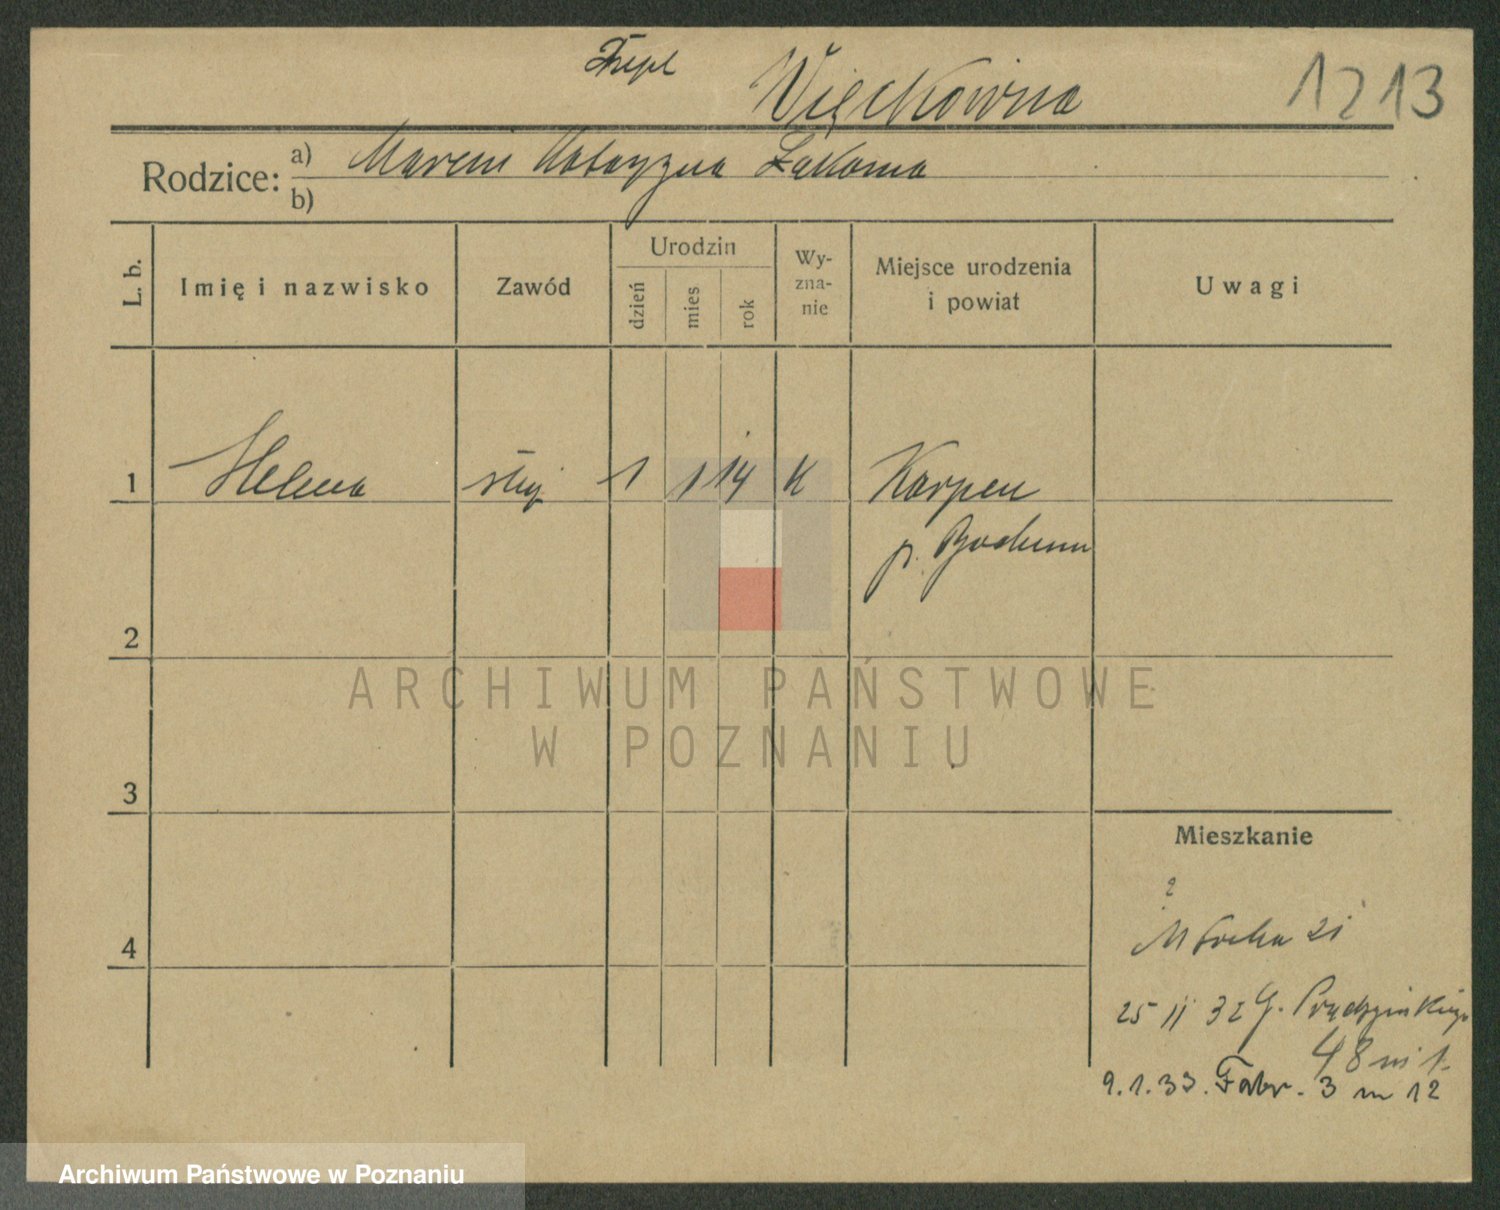 Więckówna
1213
Rodzice:
a) Marcin Katarzyna Łakoma
b)
L. b.
Imię i nazwisko
Zawód
Urodzin
dzień
mies
rok
Wy-
zna-
nie
Miejsce urodzenia
i powiat
Uwagi
1 Helena służ 1 1 14 K Karpen
p. Bochum
2
ARCHIWUM PAŃSTWOWE
W POZNANIU
3
Mieszkanie
?
4
21
25 11 32 G. Prądzyńskiego
48 m 1
9.1.33. Fabr. 3 m 12
Archiwum Państwowe w Poznaniu